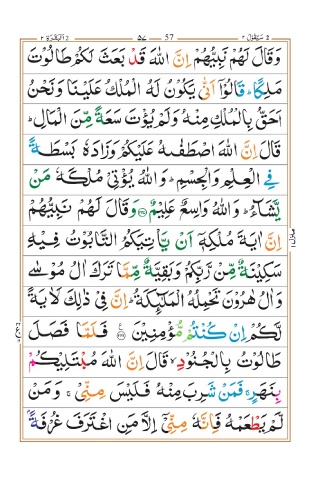 البقرة ٢ ٥٧ 57 سيقول ٢
وَقَالَ لَهُمْ نَبِيُّهُمْ اِنَّ اللهَ قَدْ بَعَثَ لَكُمْ طَالُوْتَ
مَلِكًا ؕ قَالُوْۤا اَنّٰى يَكُوْنُ لَهُ الْمُلْكُ عَلَيْنَا وَنَحْنُ
اَحَقُّ بِالْمُلْكِ مِنْهُ وَلَمْ يُؤْتَ سَعَةً مِّنَ الْمَالِ ؕ
قَالَ اِنَّ اللهَ اصْطَفٰىهُ عَلَيْكُمْ وَزَادَهٗ بَسْطَةً
فِي الْعِلْمِ وَالْجِسْمِ ؕ وَاللهُ يُؤْتِيْ مُلْكَهٗ مَنْ
يَّشَآءُ ؕ وَاللهُ وَاسِعٌ عَلِيْمٌ ﴿٢٤٧﴾ وَقَالَ لَهُمْ نَبِيُّهُمْ
اِنَّ اٰيَةَ مُلْكِهٖۤ اَنْ يَّاْتِيَكُمُ التَّابُوْتُ فِيْهِ
سَكِيْنَةٌ مِّنْ رَّبِّكُمْ وَبَقِيَّةٌ مِّمَّا تَرَكَ اٰلُ مُوْسٰى
وَاٰلُ هٰرُوْنَ تَحْمِلُهُ الْمَلٰٓئِكَةُ ؕ اِنَّ فِيْ ذٰلِكَ لَاٰيَةً
لَّكُمْ اِنْ كُنْتُمْ مُّؤْمِنِيْنَ ﴿٢٤٨﴾ فَلَمَّا فَصَلَ
طَالُوْتُ بِالْجُنُوْدِ ۙ قَالَ اِنَّ اللهَ مُبْتَلِيْكُمْ
بِنَهَرٍ ۚ فَمَنْ شَرِبَ مِنْهُ فَلَيْسَ مِنِّيْ ۚ وَمَنْ
لَّمْ يَطْعَمْهُ فَاِنَّهٗ مِنِّيْۤ اِلَّا مَنِ اغْتَرَفَ غُرْفَةًۢ